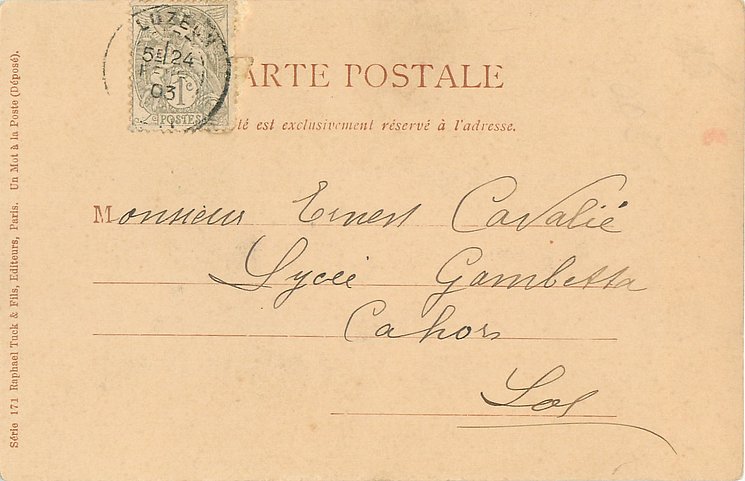 LUZECH
5E 24
03
1c
POSTES
ARTE POSTALE
té est exclusivement réservé à l'adresse.
Monsieur Ernest Cavalié
Lycée Gambetta
Cahors
Lot
Série 171 Raphael Tuck & Fils, Editeurs, Paris. Un Mot à la Poste (Déposé).